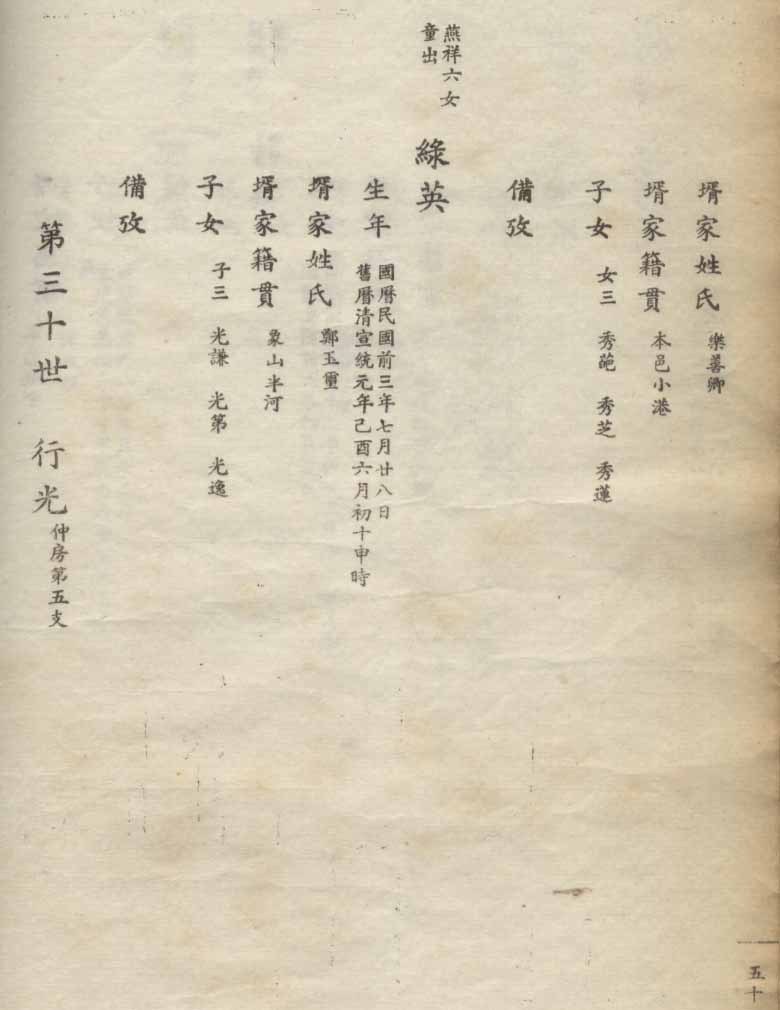 壻家姓氏 樂善卿
壻家籍貫 本邑小港
子女 女三 秀葩 秀芝 秀蓮
備攷
燕祥六女
童出
綠英
生年 國曆民國前三年七月廿八日
舊曆清宣統元年己酉六月初十申時
壻家姓氏 鄭玉璽
壻家籍貫 象山半河
子女 子三 光謙 光第 光逸
備攷
第三十世 行光 仲房第五支
五十